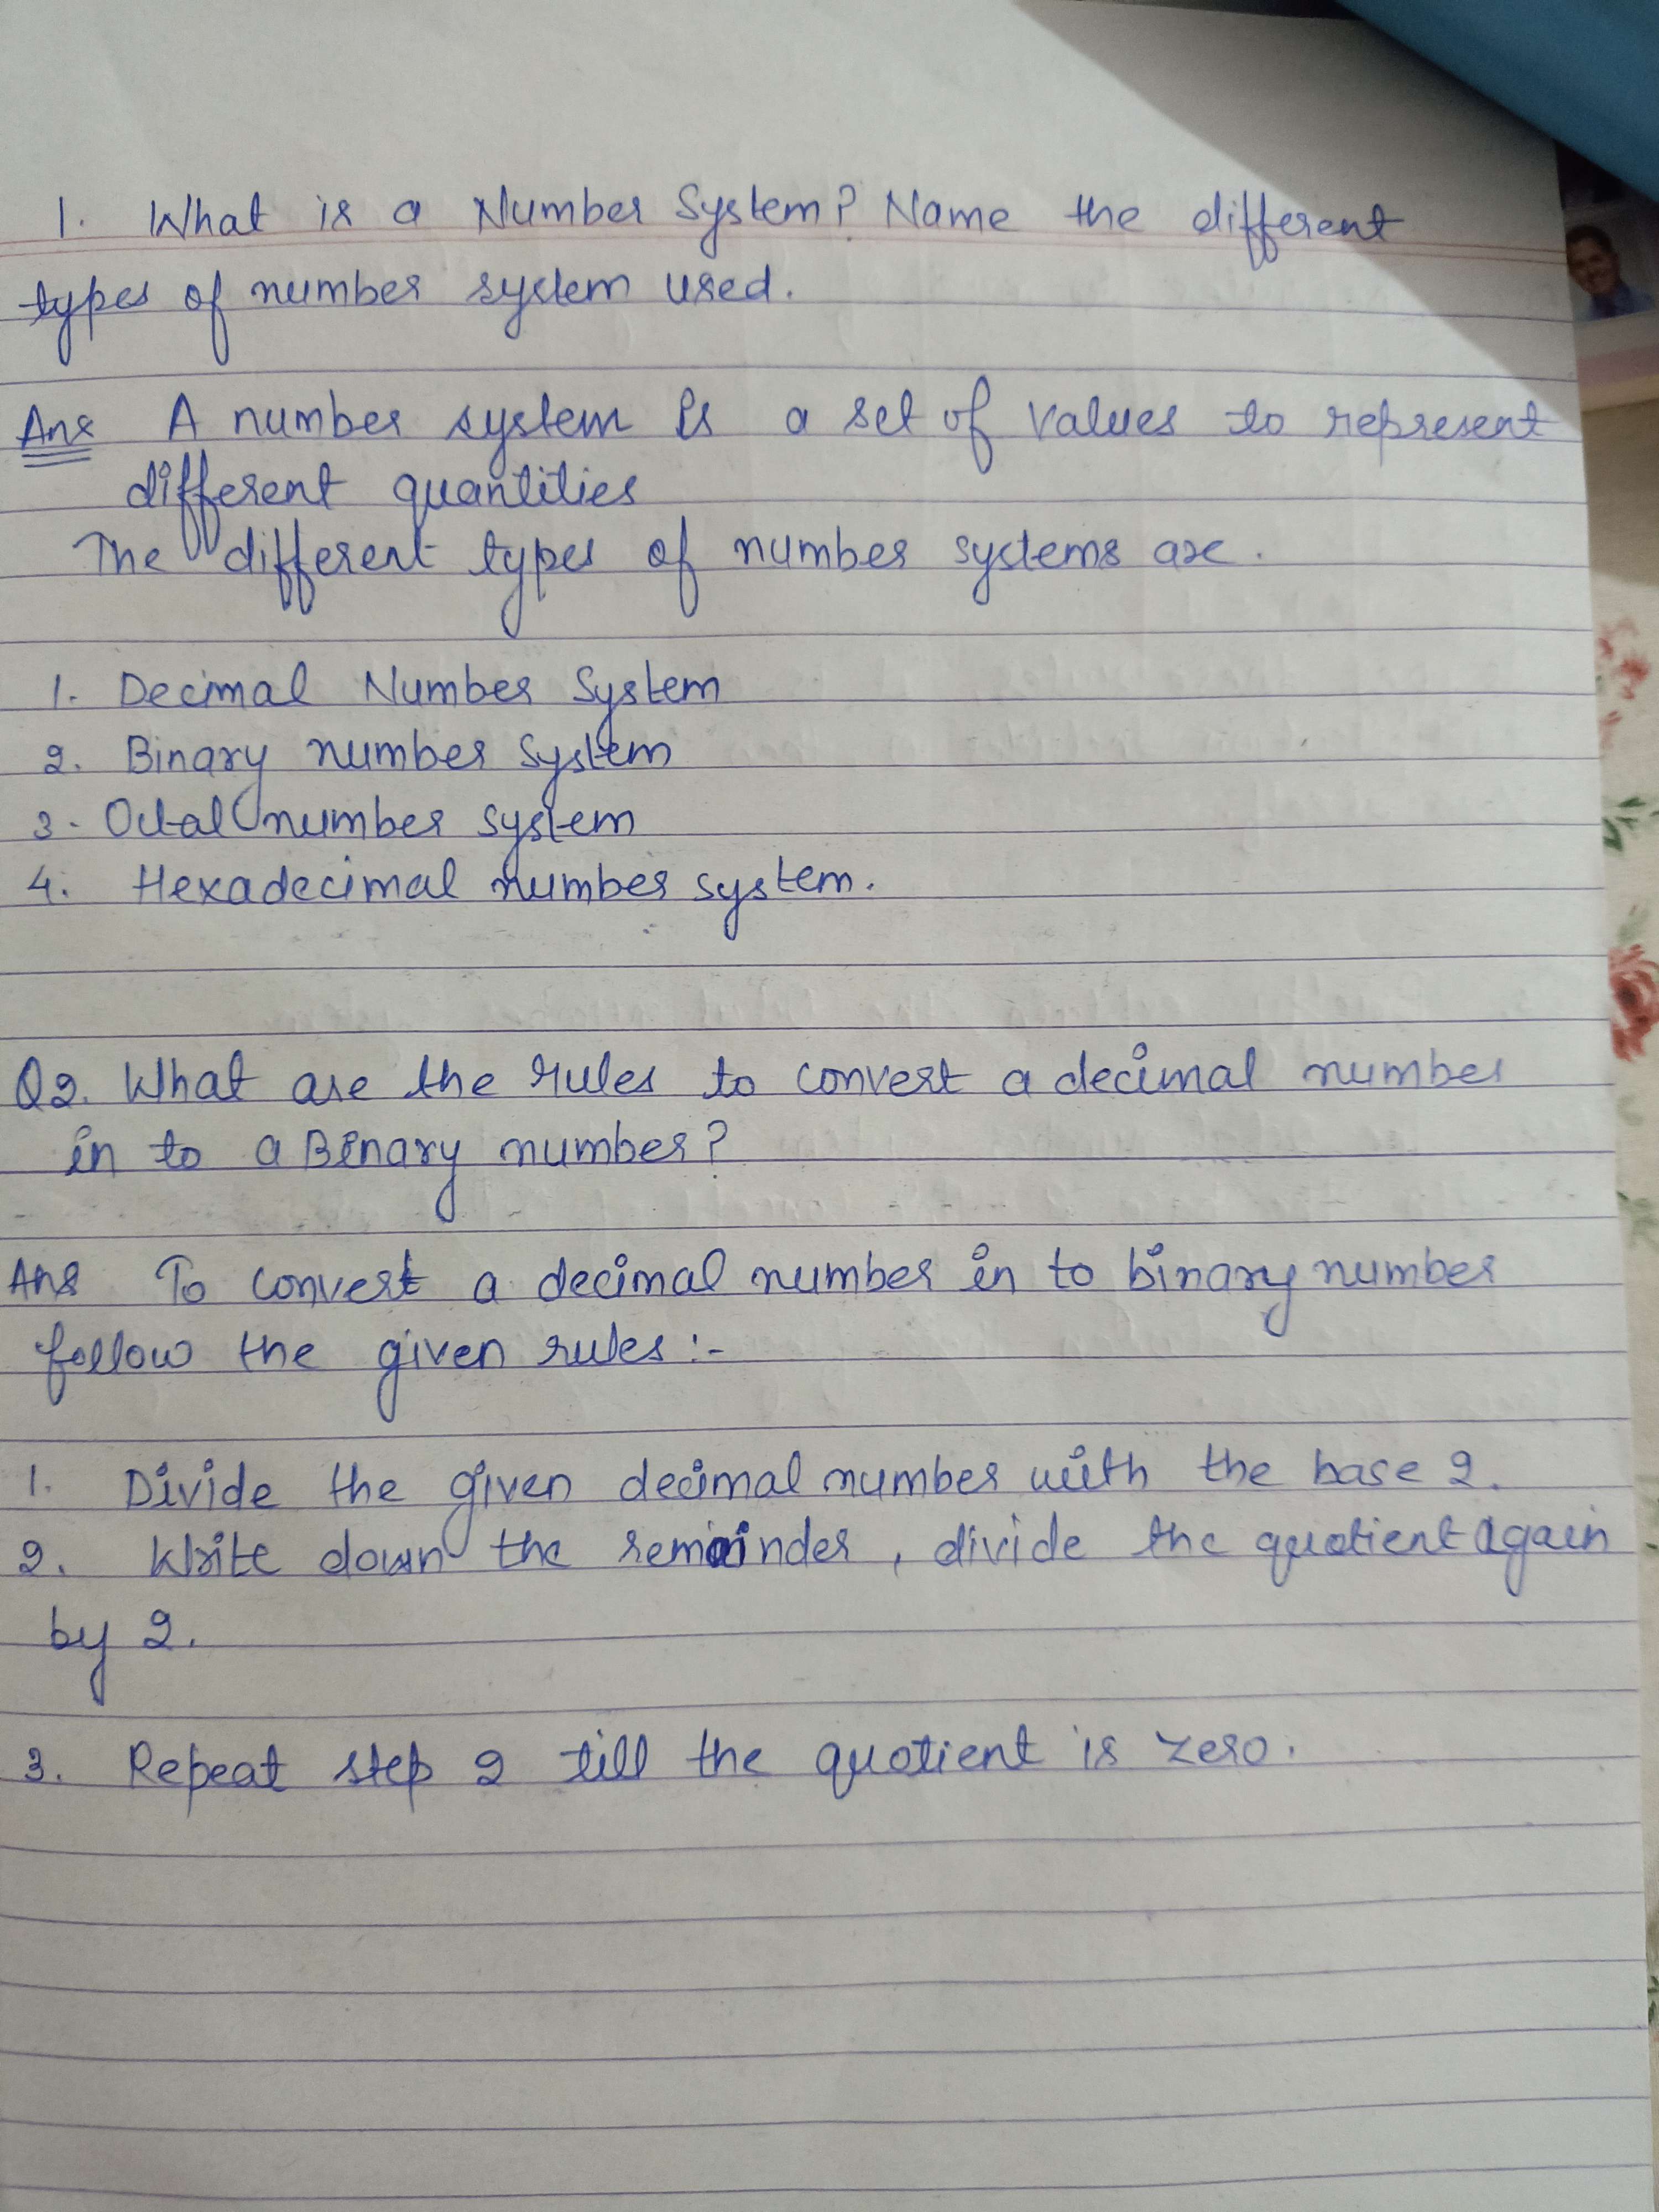 1. What is a Number System? Name the different
types of number system used.
Ans A number system is a set of values to represent
different quantities
The different types of number systems are.
1. Decimal Number System
2. Binary number System
3. Octal number system
4. Hexadecimal number system.
Q2. What are the rules to convert a decimal number
in to a Binary number?
Ans To convert a decimal number in to binary number
follow the given rules :-
1. Divide the given decimal number with the base 2.
2. Write down the remainder, divide the quotient again
by 2.
3. Repeat step 2 till the quotient is zero.